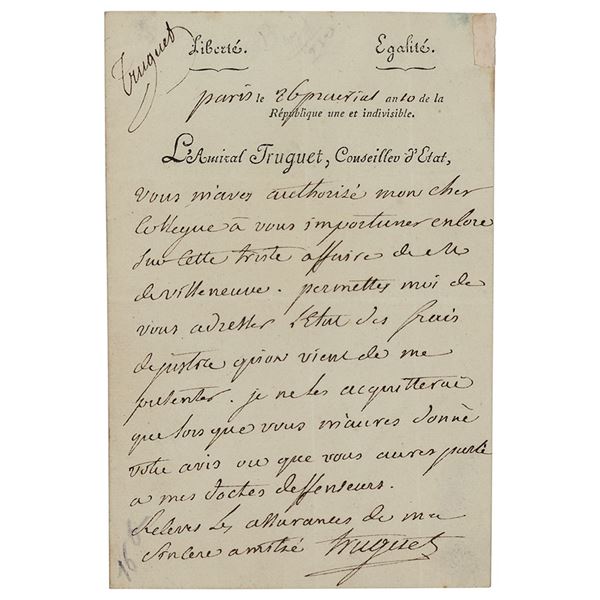 Truguet
Liberté. Egalité.
paris le 26 prairial an 10 de la
République une et indivisible.
L'Amiral Truguet, Conseiller d'Etat,
vous m'aves authorisé mon cher
Collegue à vous importuner encore
sur cette triste affaire de M
de villeneuve. permettes moi de
vous adresser l'Etat des frais
de justice qu'on vient de me
presenter. je ne les acquitterai
que lorsque vous m'aures donné
votre avis ou que vous aures parlé
a mes doctes deffenseurs.
Receves les assurances de ma
sincere amitié Truguet